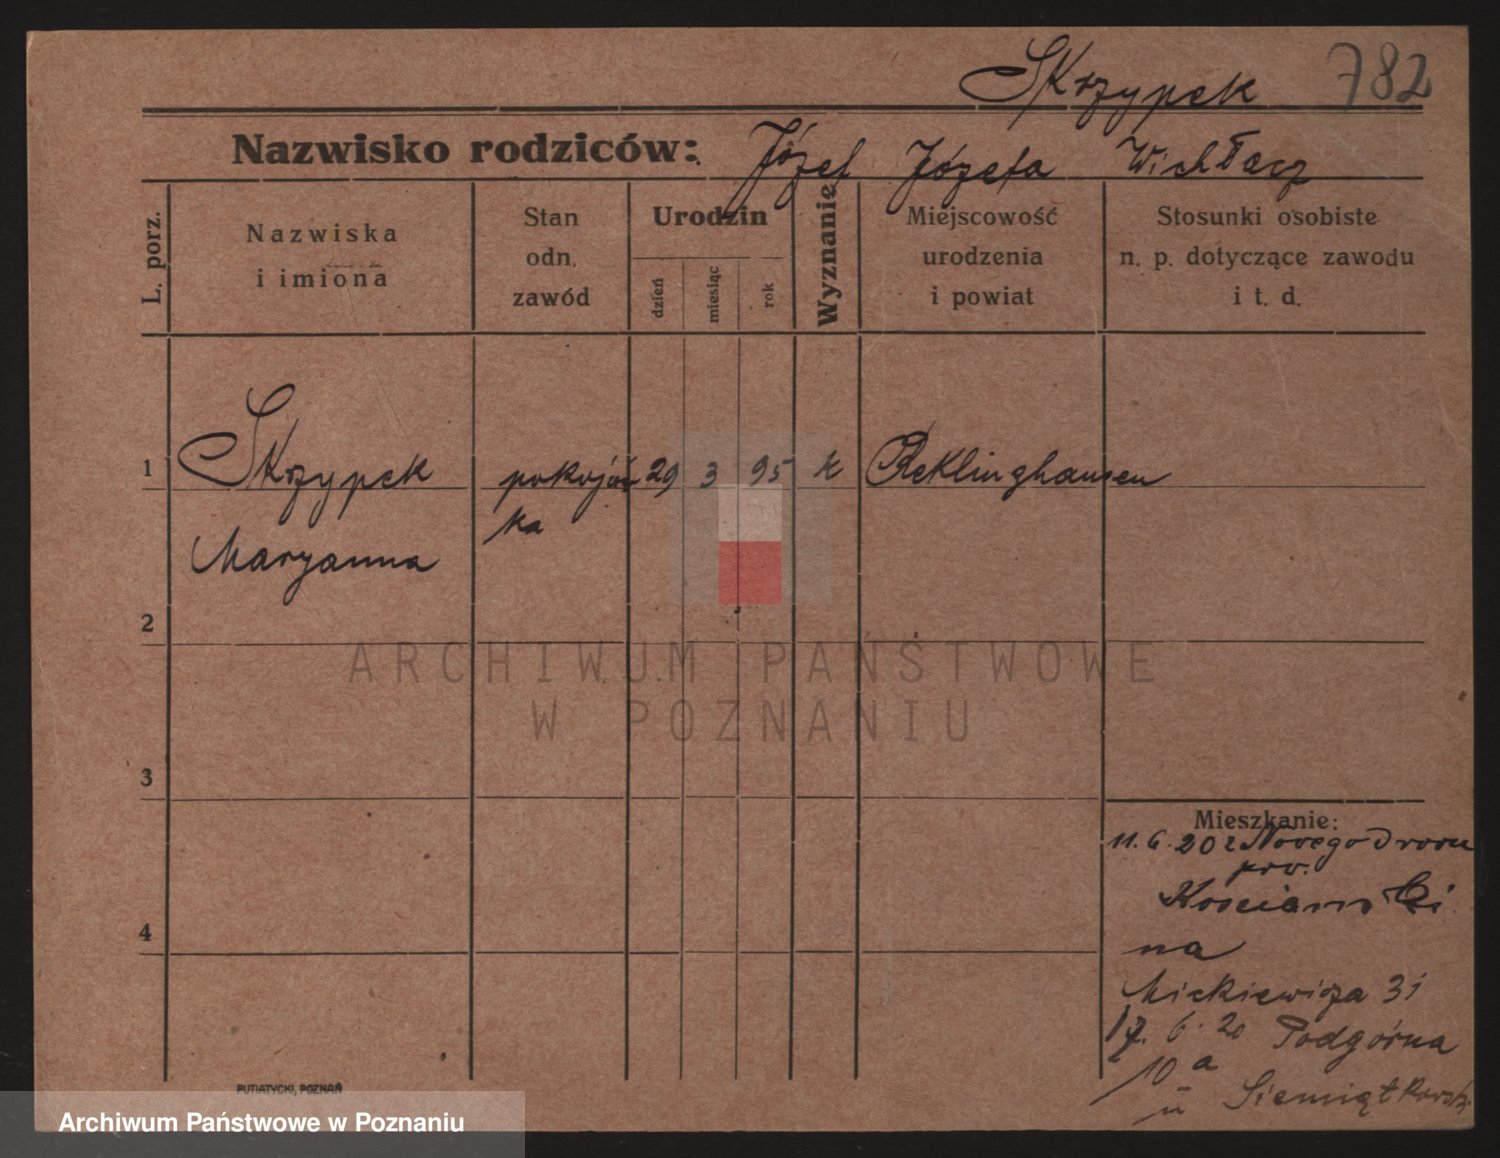 Skrzypek 782
Nazwisko rodziców: Józef Józefa Wichłacz
L. porz.
Nazwiska
i imiona
Stan
odn.
zawód
Urodzin
dzień
miesiąc
rok
Wyznanie
Miejscowość
urodzenia
i powiat
Stosunki osobiste
n. p. dotyczące zawodu
i t. d.
1 Skrzypek pokojów 29 3 95 k Reklinghausen
ka
Maryanna
2
3
4
Mieszkanie:
11. 6. 20 z Nowego
pow.
Kościański
na
Mickiewicza 31
17. 6. 20 Podgórna
10 a
u Siemiątkowsk.
PUTIATYCKI, POZNAŃ
ARCHIWUM PAŃSTWOWE
W POZNANIU
Archiwum Państwowe w Poznaniu